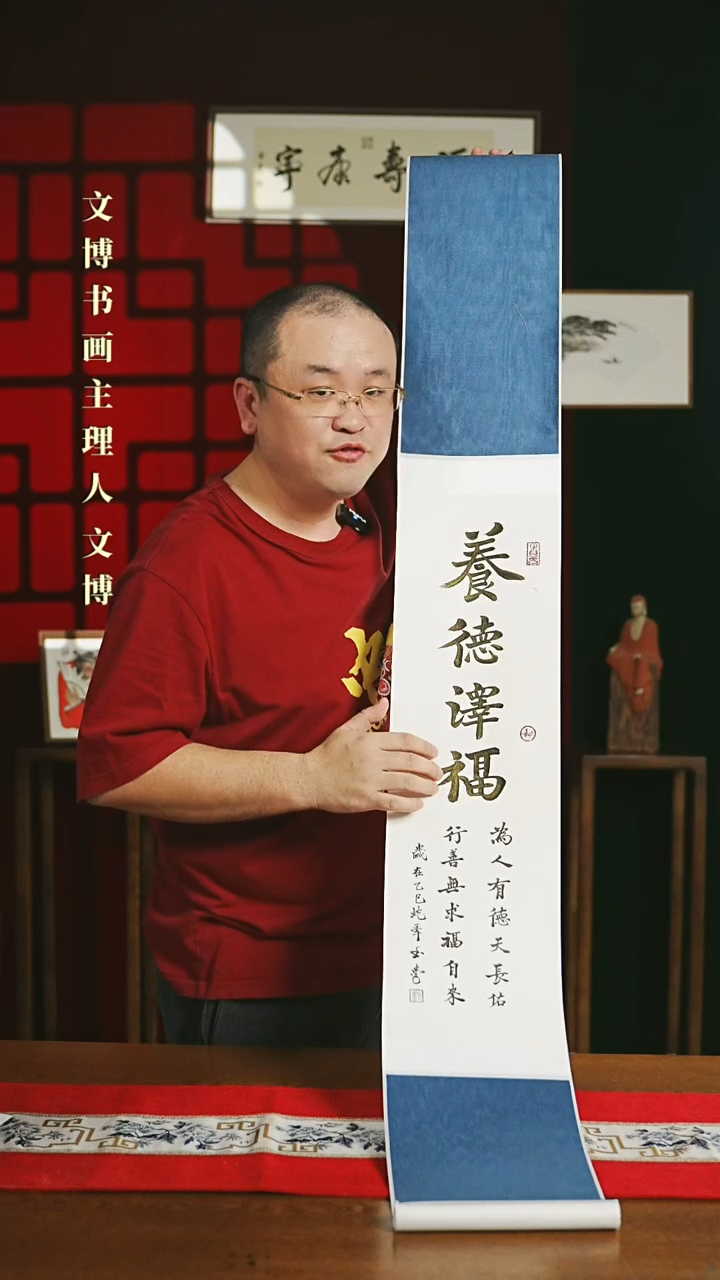 文博书画主理人 文博
寿康宁
養德澤福
為人有德天長佑
行善無求福自來
歲在乙巳蛇年